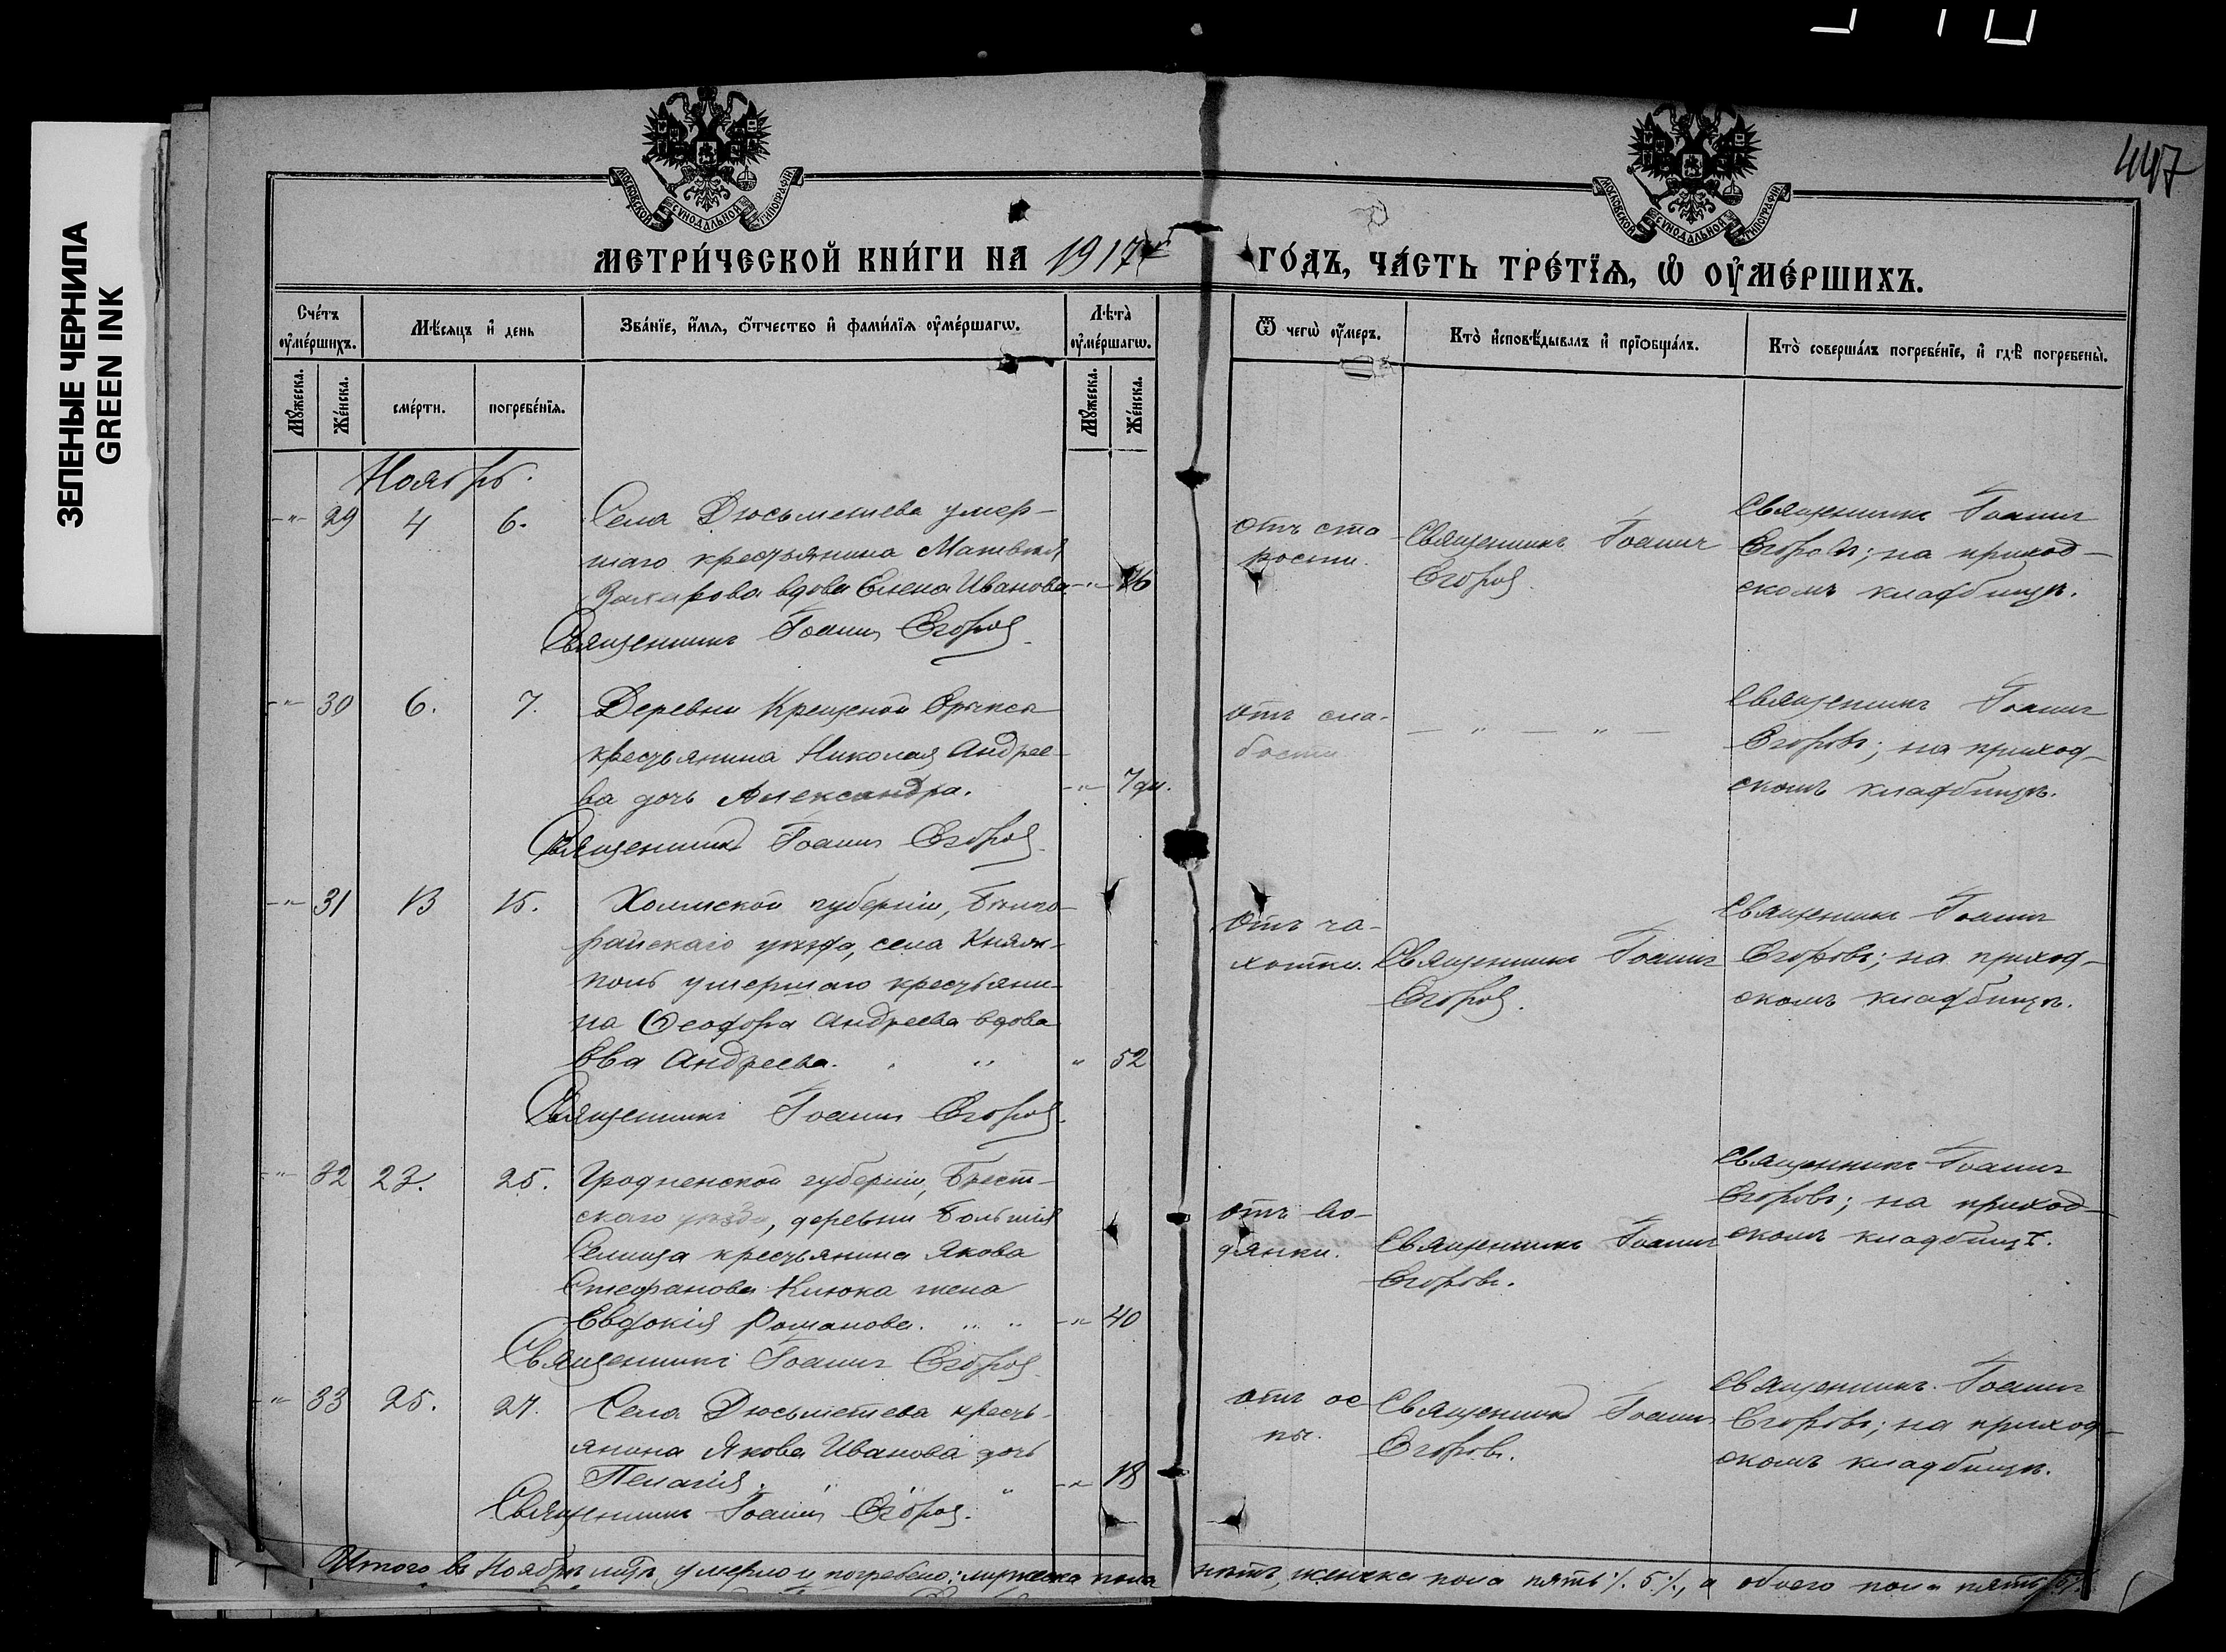 ЗЕЛЕНЫЕ ЧЕРНИЛА
GREEN INK
447
МОСКОВСКОЙ СѴНОДАЛЬНОЙ ТИПОГРАФІИ
МОСКОВСКОЙ СѴНОДАЛЬНОЙ ТИПОГРАФІИ
МЕТРИ́ЧЕСКОЙ КНИ́ГИ НА 1917 ГО́ДЪ, ЧА́СТЬ ТРЕ́ТІѦ, Ѡ ОУ҆МЕ́РШИХЪ.
Сче́тъ оу҆ме́ршихъ.
Мѣ́сяцъ и҆ день
Зва́нїе, и҆́мѧ, ѻ҆́тчество и҆ фами́лїѧ оу҆ме́ршагѡ.
Лѣта̀ оу҆ме́ршагѡ.
Ѿ чегѡ̀ оу҆́меръ.
Кто̀ и҆сповѣ́дывалъ и҆ прїѡбща́лъ.
Кто̀ соверша́лъ погребе́нїе, и҆ гдѣ̀ погребены̀.
Мꙋ́жеска.
Же́нска.
сме́рти.
погребе́нїѧ.
Мꙋ́жеска.
Же́нска.
Ноябрь.
-"- 29 4 6. Села Дюсьметева умер-
шаго крестьянина Матвея
Захарова вдова Елена Иванова -"- 76
Священникъ Іоаннъ Егоровъ
отъ ста-
рости.
Священникъ Іоаннъ
Егоровъ.
Священникъ Іоаннъ
Егоровъ; на приход-
скомъ кладбищѣ.
-"- 30 6. 7. Деревни Крещеной Ерыксы
крестьянина Николая Андрее-
ва дочь Александра. -"- 7 дн.
Священникъ Іоаннъ Егоровъ
отъ сла-
бости
— " — " —
Священникъ Іоаннъ
Егоровъ; на приход-
скомъ кладбищѣ.
-"- 31 13 15. Холмской губерніи, Бѣлго-
райскаго уѣзда, села Княж-
поль умершаго крестьяни-
на Ѳеодора Андреева вдова
Ева Андреева. " " 52
Священникъ Іоаннъ Егоровъ.
Отъ ча-
хотки.
Священникъ Іоаннъ
Егоровъ.
Священникъ Іоаннъ
Егоровъ; на приход-
скомъ кладбищѣ.
-"- 32 23. 25. Гродненской губерніи, Брест-
скаго уѣзда, деревни Большія
Селища крестьянина Якова
Стефанова Клюка жена
Евдокія Романова. " " -"- 40
Священникъ Іоаннъ Егоровъ
отъ во-
дянки.
Священникъ Іоаннъ
Егоровъ.
Священникъ Іоаннъ
Егоровъ; на приход-
скомъ кладбищѣ.
-"- 33 25. 27. Села Дюсьметева кресть-
янина Якова Иванова дочь
Пелагія. " " -"- 18
Священникъ Іоаннъ Егоровъ.
отъ ос-
пы.
Священникъ Іоаннъ
Егоровъ.
Священникъ Іоаннъ
Егоровъ; на приход-
скомъ кладбищѣ.
Итого въ Ноябрѣ мцѣ умерло и погребено: мужеска пола нѣтъ, женска пола пять /. 5 /., а обоего пола пять /. 5 /.